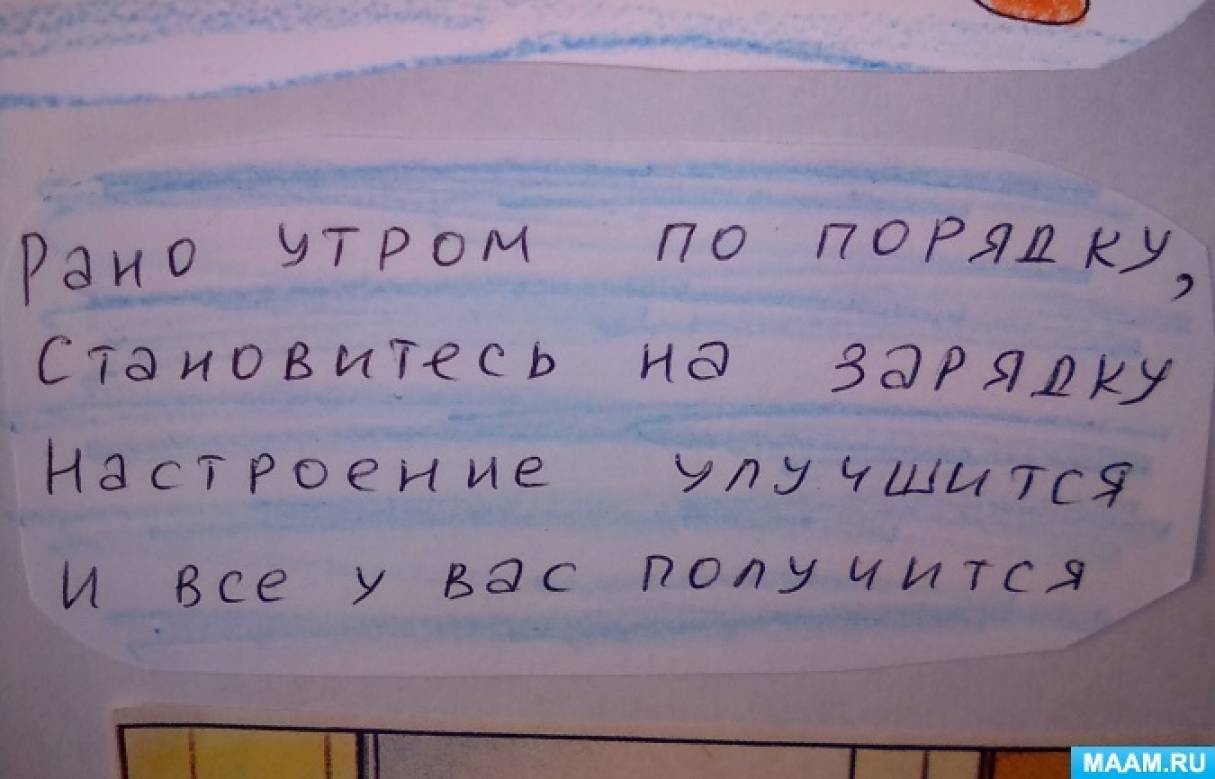 Рано утром по порядку,
Становитесь на зарядку
Настроение улучшится
И все у вас получится
MAAM.RU